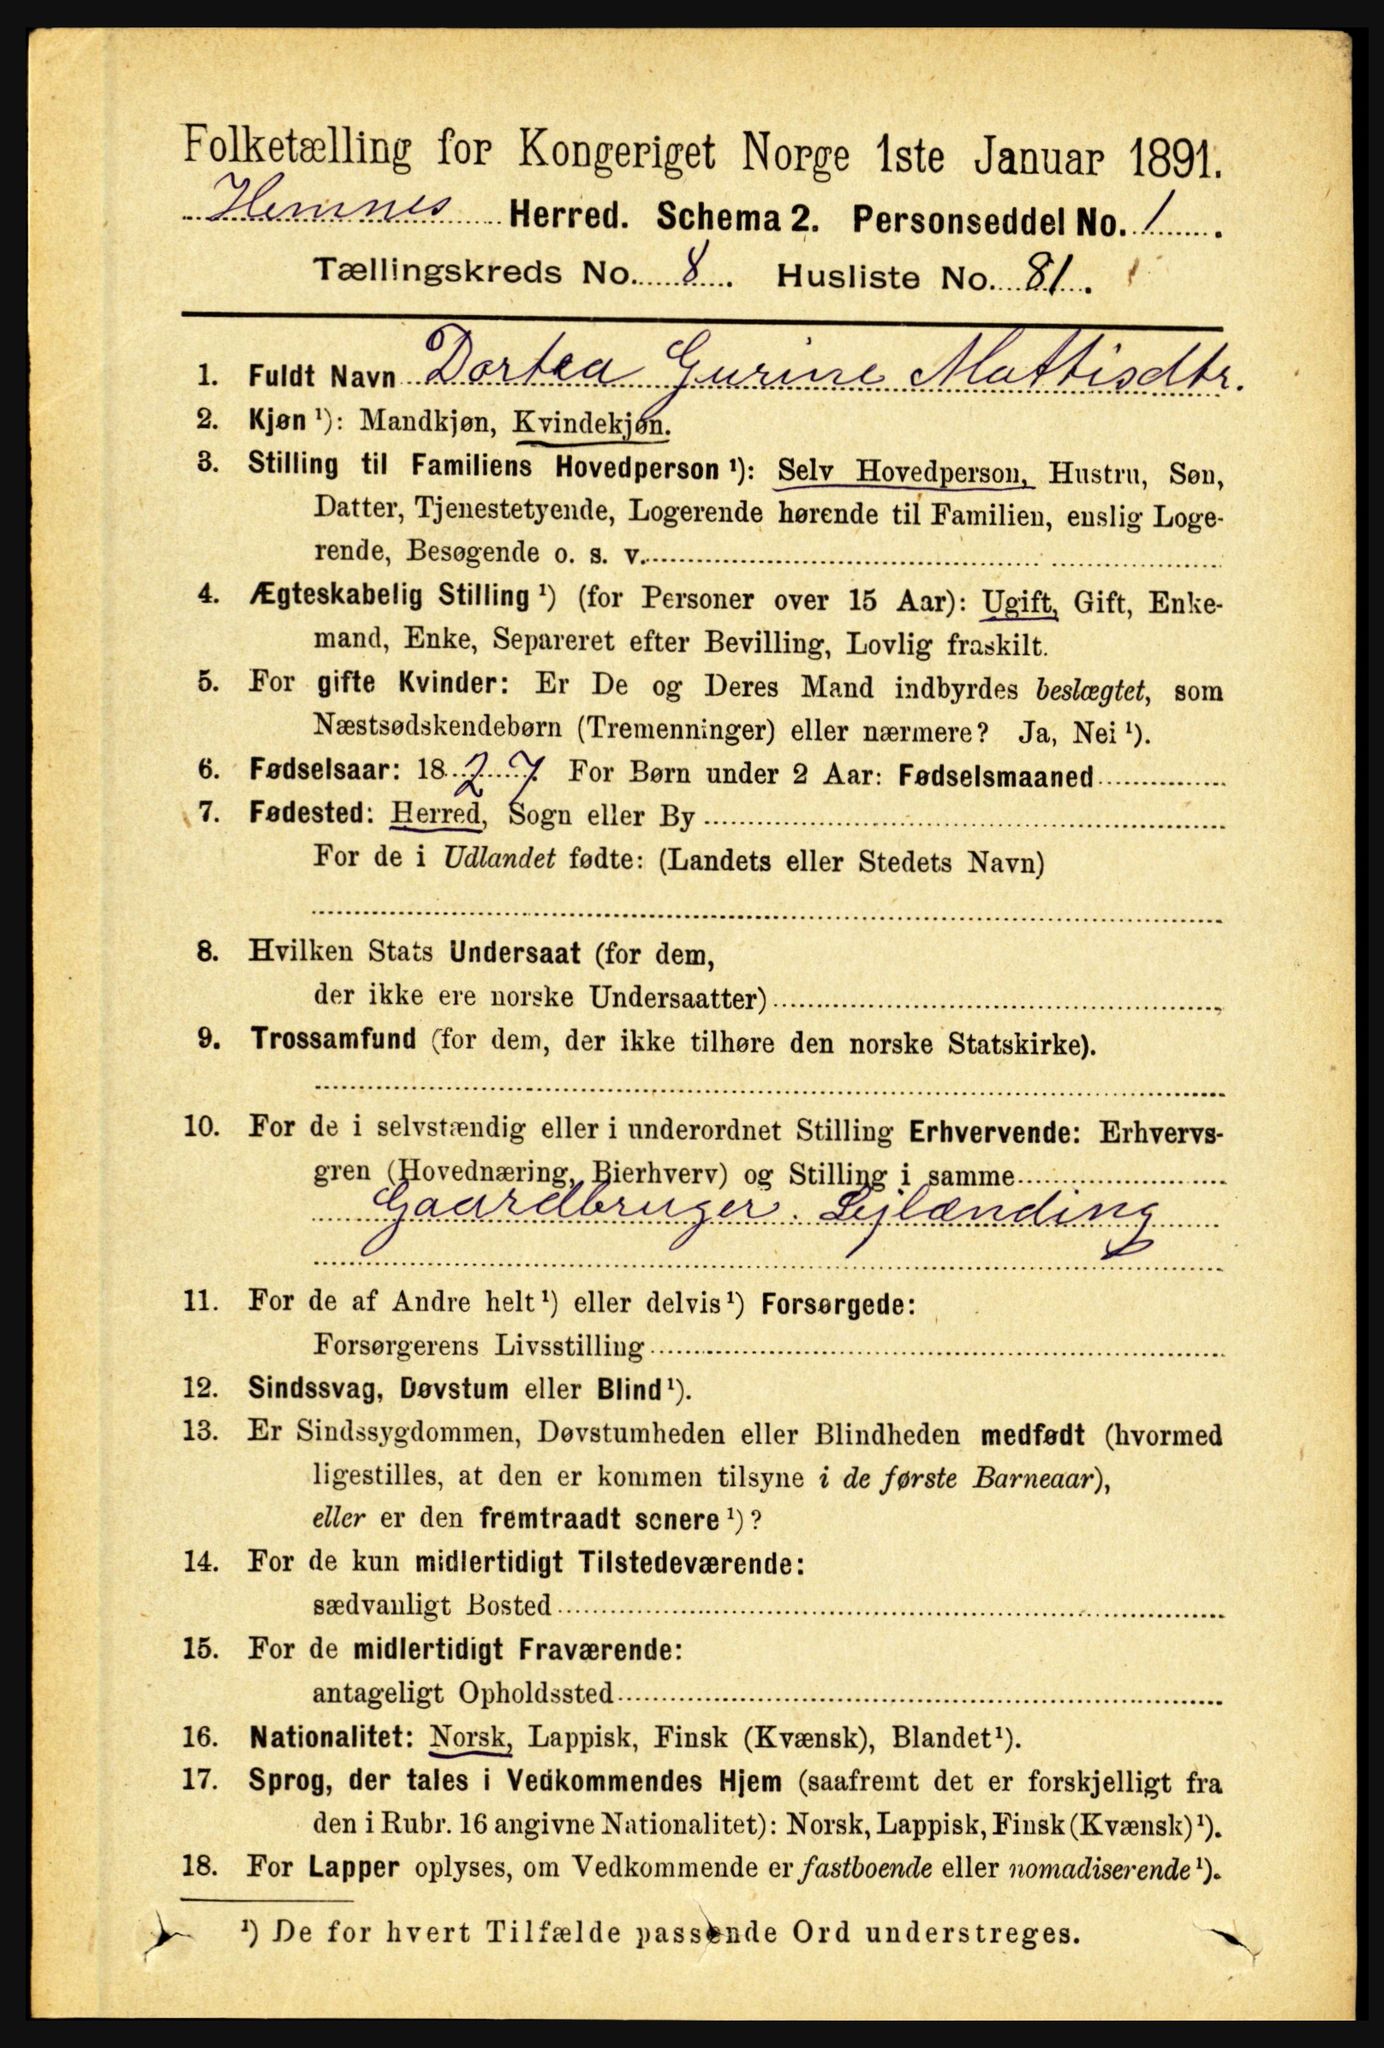 Folketælling for Kongeriget Norge 1ste Januar 1891.
Hemnes Herred. Schema 2. Personseddel No. 1.
Tællingskreds No. 8. Husliste No. 81.
1. Fuldt Navn Dortea Gurine Mattisdtr.
2. Kjøn ¹): Mandkjøn, Kvindekjøn.
3. Stilling til Familiens Hovedperson ¹): Selv Hovedperson, Hustru, Søn,
Datter, Tjenestetyende, Logerende hørende til Familien, enslig Loge-
rende, Besøgende o. s. v.
4. Ægteskabelig Stilling ¹) (for Personer over 15 Aar): Ugift, Gift, Enke-
mand, Enke, Separeret efter Bevilling, Lovlig fraskilt.
5. For gifte Kvinder: Er De og Deres Mand indbyrdes beslægtet, som
Næstsødskendebørn (Tremenninger) eller nærmere? Ja, Nei ¹).
6. Fødselsaar: 1827. For Børn under 2 Aar: Fødselsmaaned
7. Fødested: Herred, Sogn eller By
For de i Udlandet fødte: (Landets eller Stedets Navn)
8. Hvilken Stats Undersaat (for dem,
der ikke ere norske Undersaatter)
9. Trossamfund (for dem, der ikke tilhøre den norske Statskirke).
10. For de i selvstændig eller i underordnet Stilling Erhvervende: Erhvervs-
gren (Hovednæring, Bierhverv) og Stilling i samme
Gaardbruger. Lejlænding
11. For de af Andre helt ¹) eller delvis ¹) Forsørgede:
Forsørgerens Livsstilling
12. Sindssvag, Døvstum eller Blind ¹).
13. Er Sindssygdommen, Døvstumheden eller Blindheden medfødt (hvormed
ligestilles, at den er kommen tilsyne i de første Barneaar),
eller er den fremtraadt senere ¹)?
14. For de kun midlertidigt Tilstedeværende:
sædvanligt Bosted
15. For de midlertidigt Fraværende:
antageligt Opholdssted
16. Nationalitet: Norsk, Lappisk, Finsk (Kvænsk), Blandet ¹).
17. Sprog, der tales i Vedkommendes Hjem (saafremt det er forskjelligt fra
den i Rubr. 16 angivne Nationalitet): Norsk, Lappisk, Finsk (Kvænsk) ¹).
18. For Lapper oplyses, om Vedkommende er fastboende eller nomadiserende ¹).
¹) De for hvert Tilfælde passende Ord understreges.